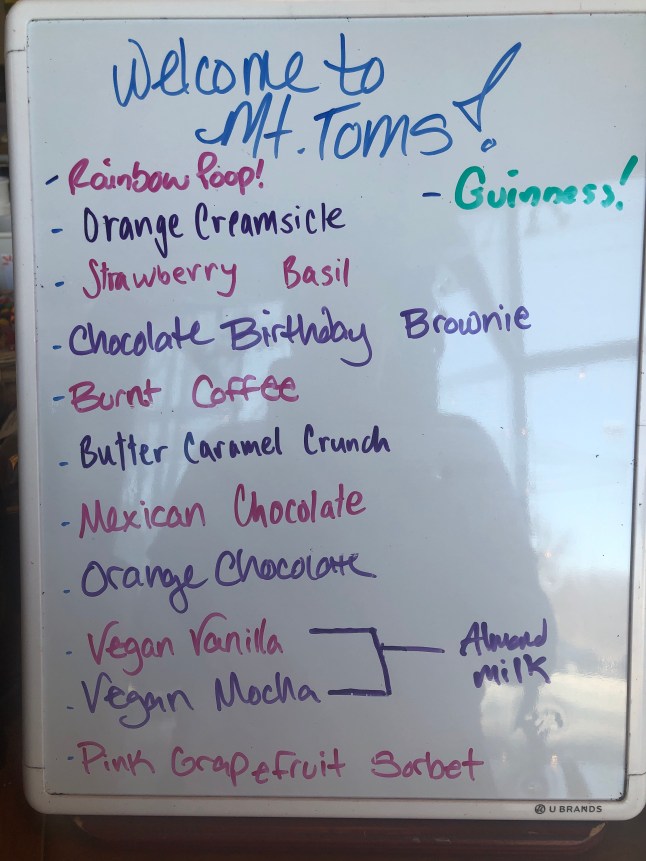 Welcome to
Mt. Toms!
- Rainbow Poop!
- Guinness!
- Orange Creamsicle
- Strawberry Basil
- Chocolate Birthday Brownie
- Burnt Coffee
- Butter Caramel Crunch
- Mexican Chocolate
- Orange Chocolate
- Vegan Vanilla
- Vegan Mocha
Almond
milk
- Pink Grapefruit Sorbet
U BRANDS